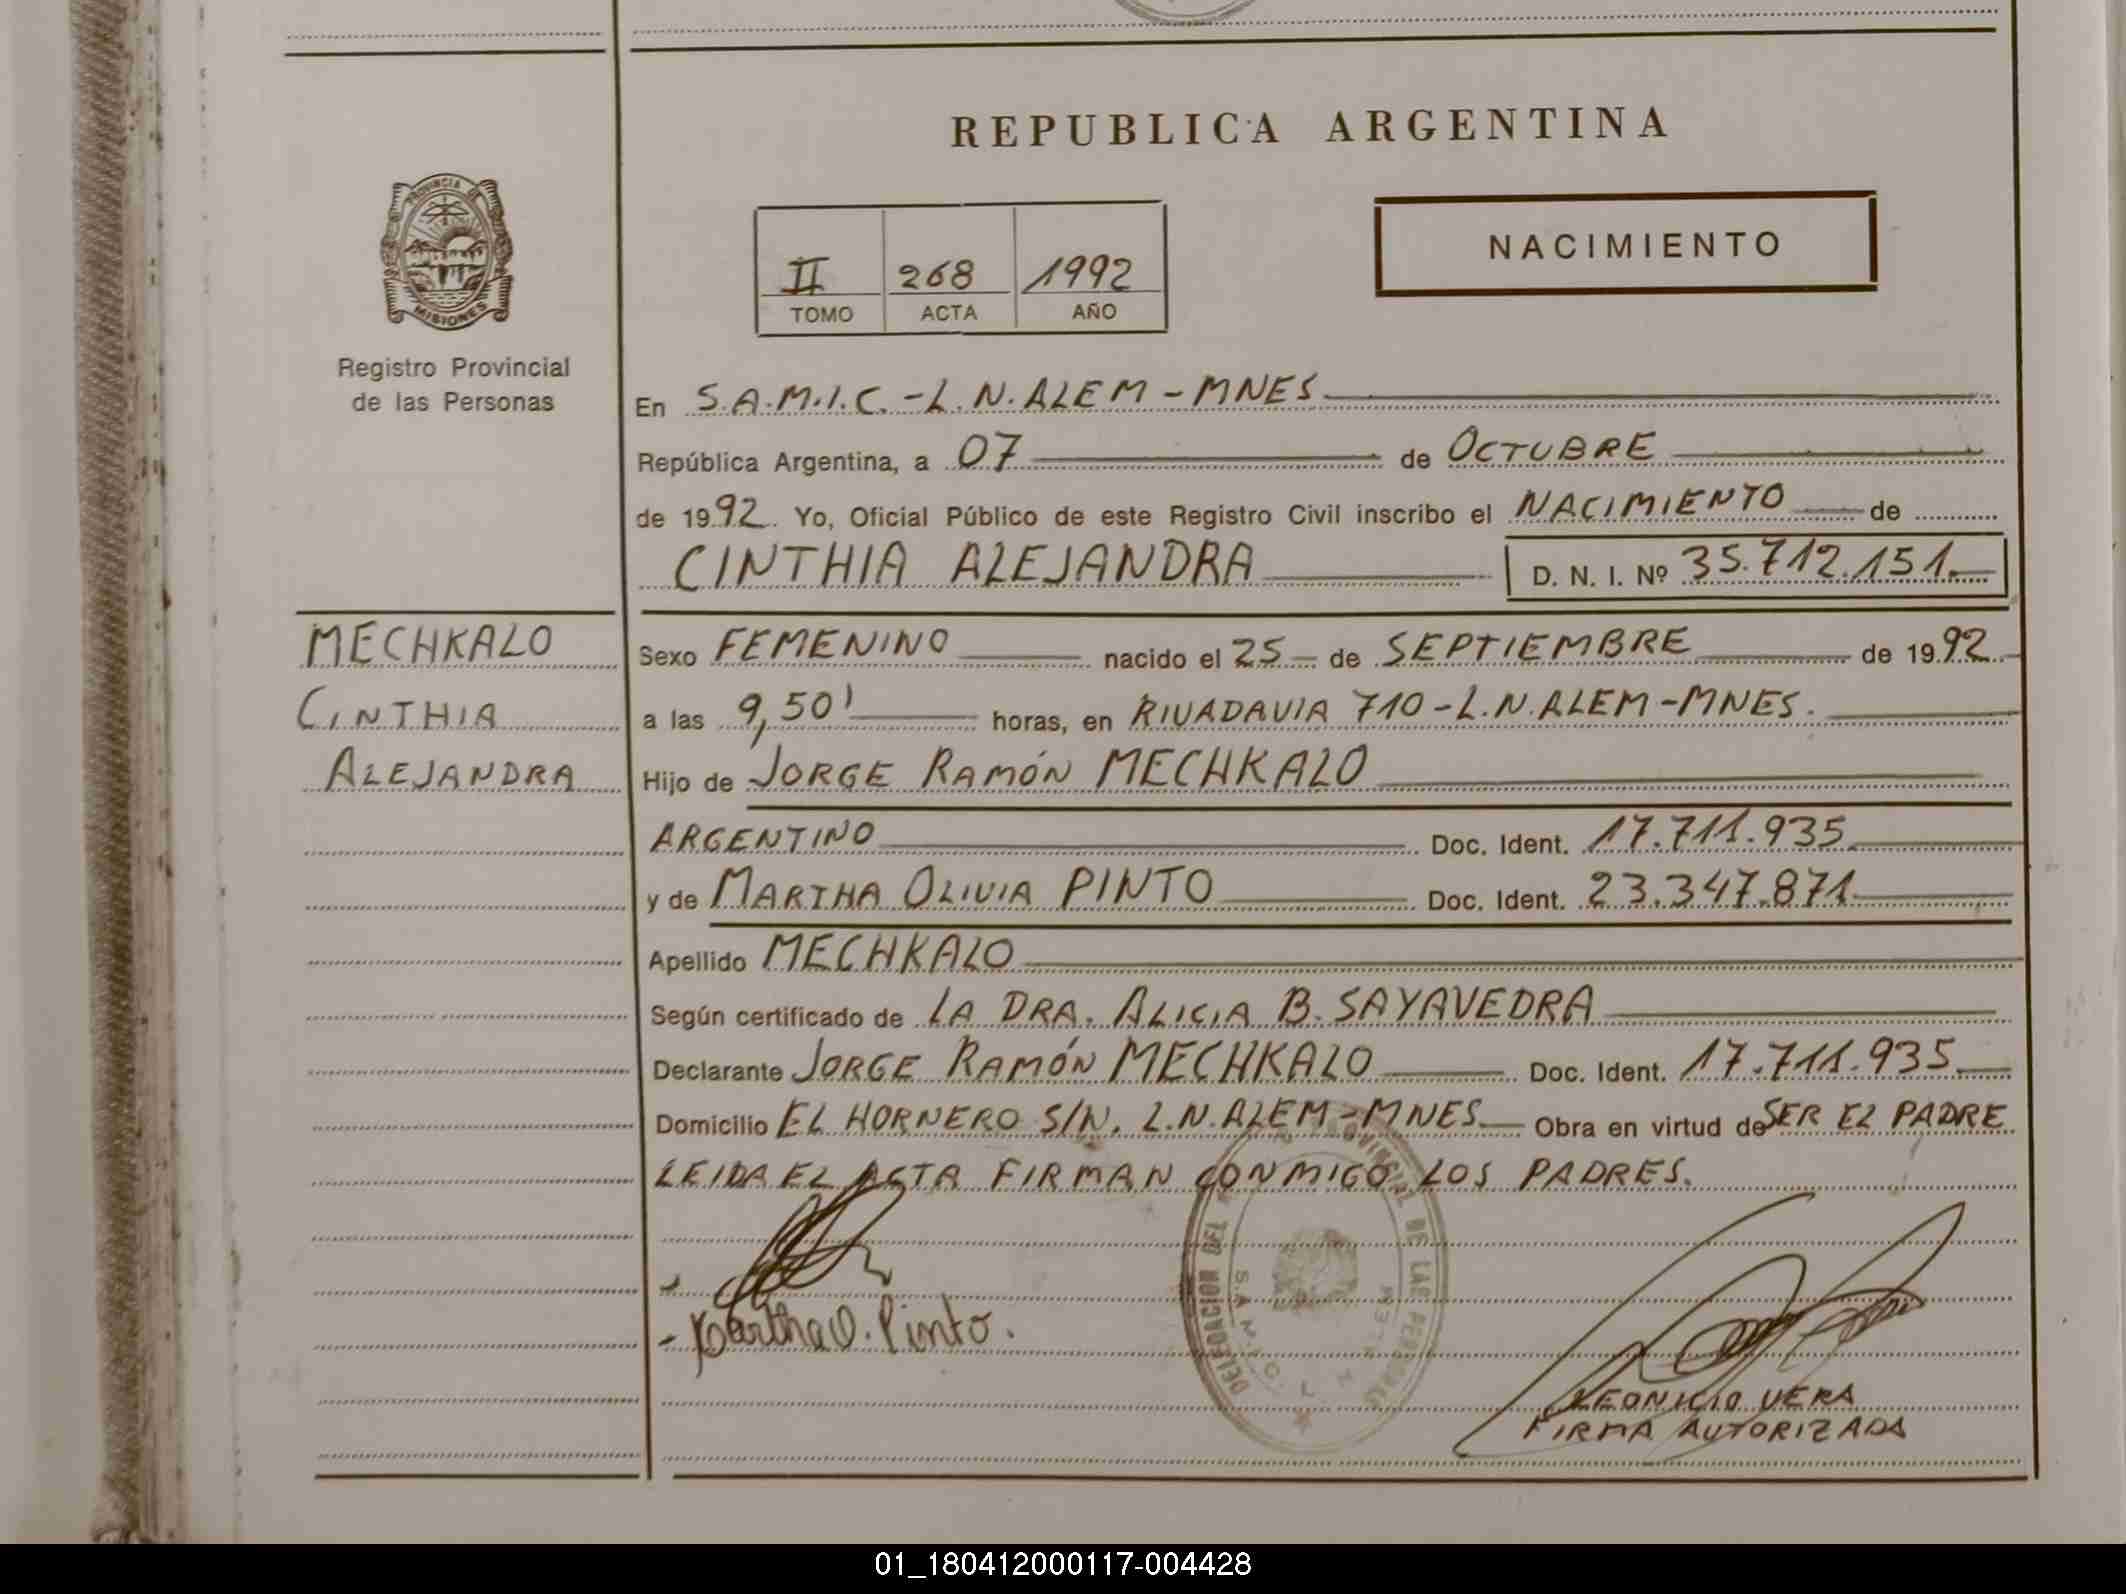 REPUBLICA ARGENTINA
PROVINCIA DE
MISIONES
Registro Provincial
de las Personas
II 268 1992
TOMO ACTA AÑO
NACIMIENTO
En S.A.M.I.C. - L.N. ALEM - MNES
República Argentina, a 07 de OCTUBRE
de 1992. Yo, Oficial Público de este Registro Civil inscribo el NACIMIENTO de
CINTHIA ALEJANDRA D. N. I. Nº 35.712.151.
MECHKALO
CINTHIA
ALEJANDRA
Sexo FEMENINO nacido el 25 de SEPTIEMBRE de 1992
a las 9,50' horas, en RIVADAVIA 710 - L.N. ALEM - MNES.
Hijo de JORGE RAMÓN MECHKALO
ARGENTINO Doc. Ident. 17.711.935
y de MARTHA OLIVIA PINTO Doc. Ident. 23.347.871
Apellido MECHKALO
Según certificado de LA DRA. ALICIA B. SAYAVEDRA
Declarante JORGE RAMÓN MECHKALO Doc. Ident. 17.711.935
Domicilio EL HORNERO S/N. L.N. ALEM - MNES Obra en virtud de SER EL PADRE
LEIDA EL ACTA FIRMAN CONMIGO LOS PADRES.
- Martha O. Pinto.
DELEGACION DEL PROVINCIAL DE LAS PERSONAS
LEONICIO VERA
FIRMA AUTORIZADA
01_180412000117-004428